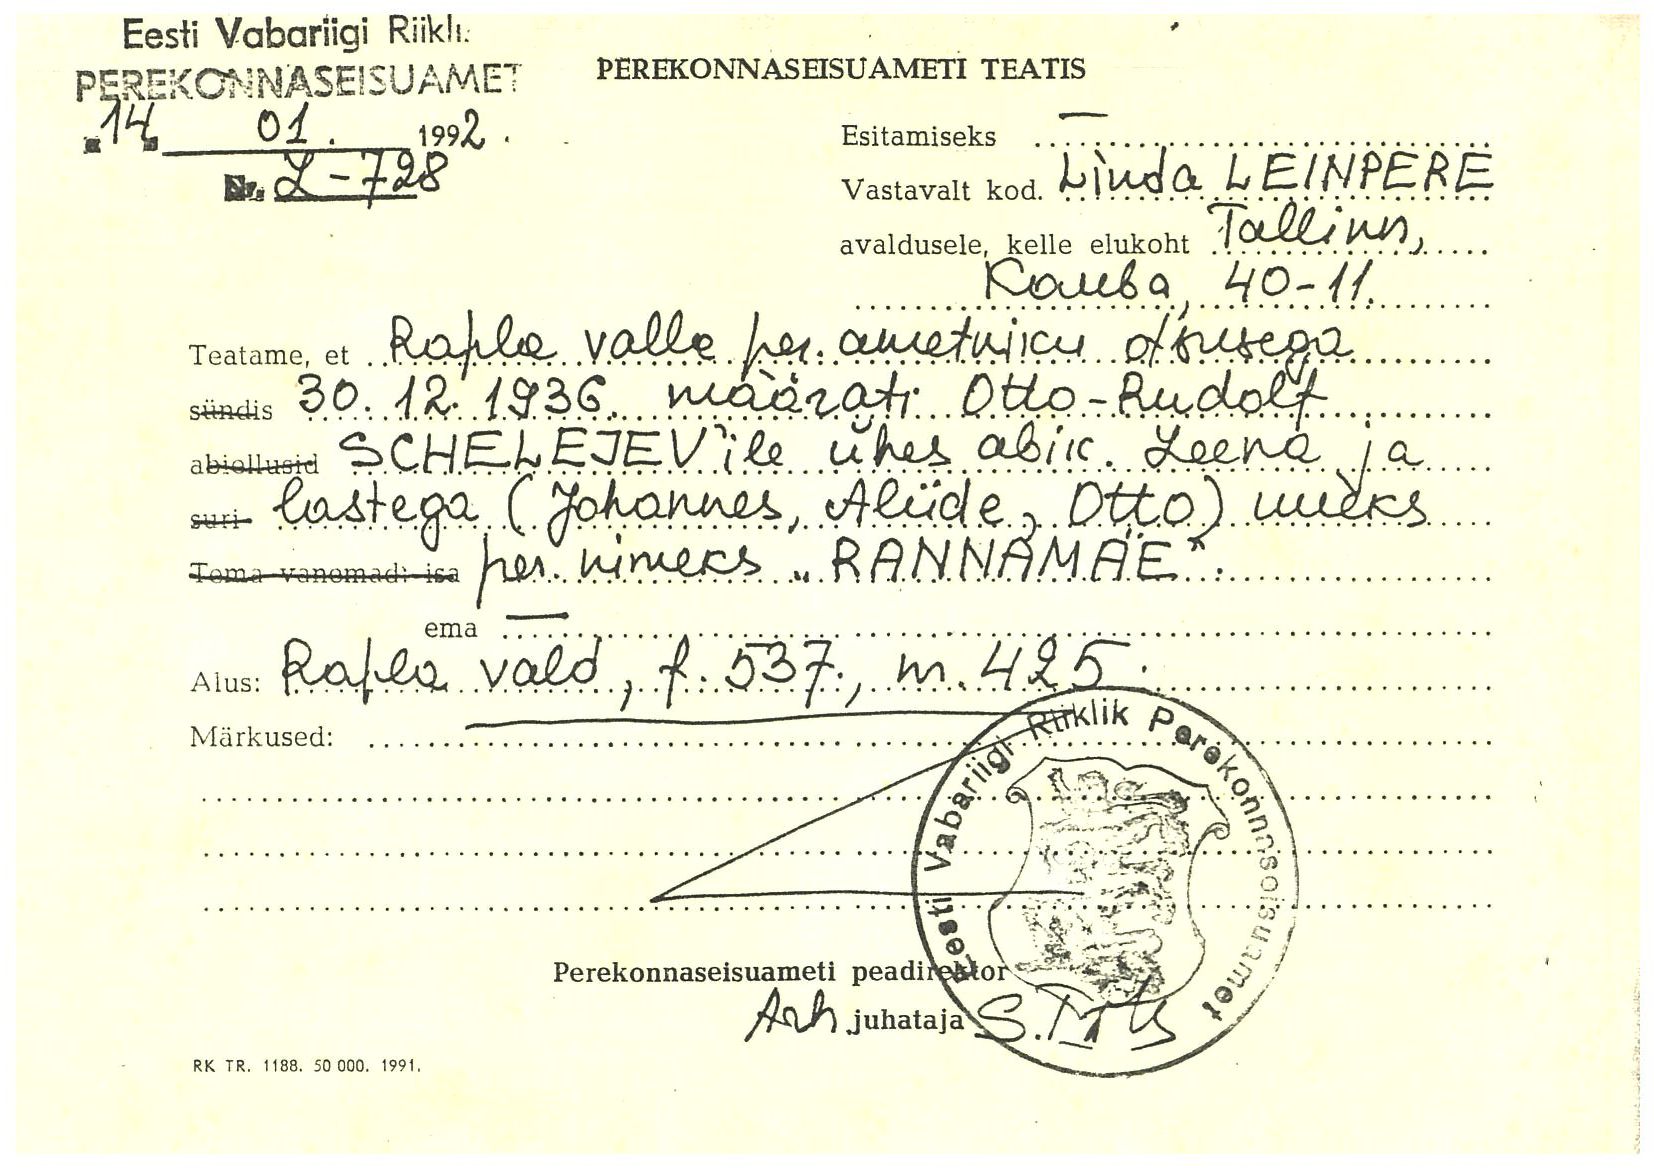 Eesti Vabariigi Riikli.
PEREKONNASEISUAMET
14. 01. 1992.
Nr. L-728
PEREKONNASEISUAMETI TEATIS
Esitamiseks —
Vastavalt kod. Linda LEINPERE
avaldusele, kelle elukoht Tallinn,
Kauba, 40-11.
Teatame, et Rapla valla per. ametniku otsusega
sündis 30. 12. 1936. määrati Otto-Rudolf
abiellusid SCHELEJEV'ile ühes abik. Leena ja
suri lastega (Johannes, Aliide, Otto) uueks
Tema vanemad: isa per. nimeks „RANNAMÄE".
ema —
Alus: Rapla vald, f. 537., m. 425.
Märkused:
Eesti Vabariigi Riiklik Perekonnaseisuamet
Perekonnaseisuameti peadirektor
Arh. juhataja
RK TR. 1188. 50 000. 1991.